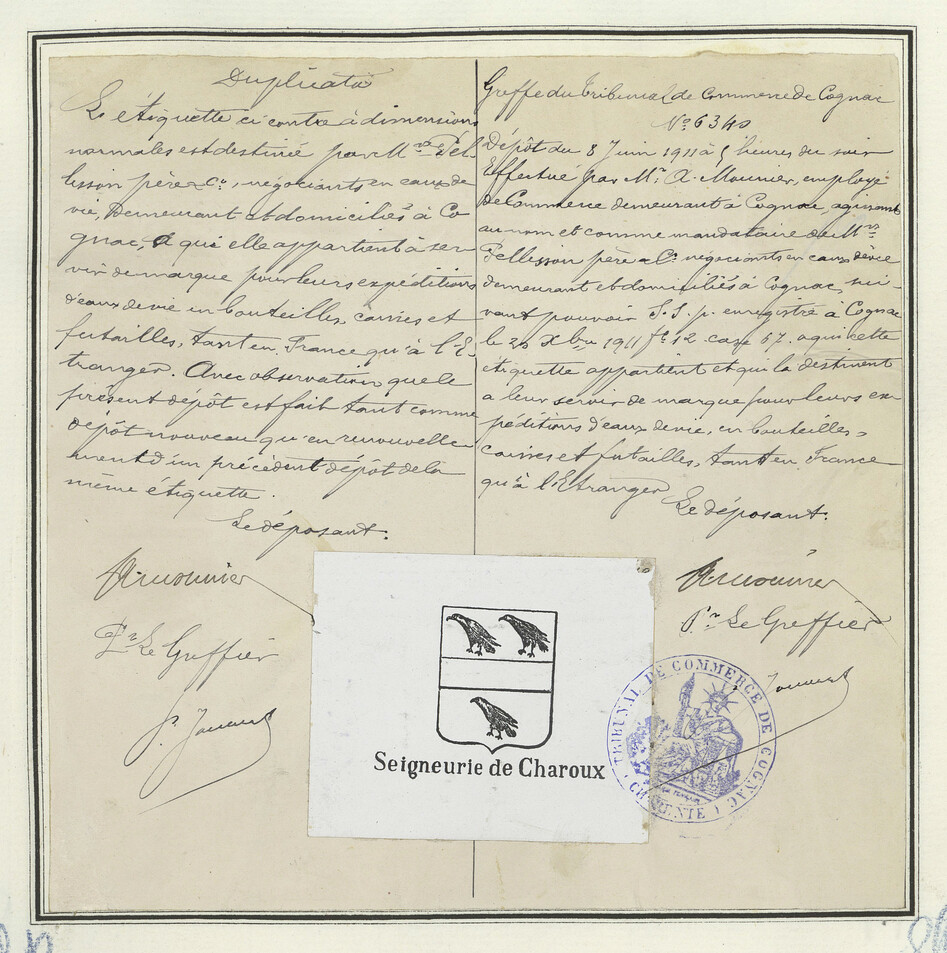 Duplicata
L'étiquette ci contre à dimensions
normales est destinée par Mrs Pel-
lisson père & Co, négociants en eaux de
vie, demeurant et domiciliés à Co
gnac, à qui elle appartient à ser
vir de marque pour leurs expéditions
d'eaux de vie en bouteilles, caisses et
futailles, tant en France qu'à l'E-
tranger. Avec observation que le
présent dépôt est fait tant comme
dépôt nouveau qu'en renouvelle
ment d'un précédent dépôt de la
même étiquette.
Le déposant.
A. Mounier
Pr Le Greffier
Greffe du Tribunal de Commerce de Cognac
No 6340
Dépôt du 8 Juin 1911 à 5 heures du soir
Effectué par Mr A. Mounier, employé
de Commerce demeurant à Cognac, agissant
au nom et comme mandataire de Mrs
Pellisson père & Co négociants en eaux de vie
demeurant et domiciliés à Cognac, sui-
vant pouvoir S.S.p. enregistré à Cognac
le 20 Xbre 1911 fo 12 case 67. à qui cette
étiquette appartient et qui la destinent
a leur servir de marque pour leurs ex
péditions d'eaux de vie, en bouteilles,
caisses et futailles, tant en France
qu'à l'Etranger
Le déposant.
A. Mounier
Pr Le Greffier
Seigneurie de Charoux
TRIBUNAL DE COMMERCE DE COGNAC
CHARENTE